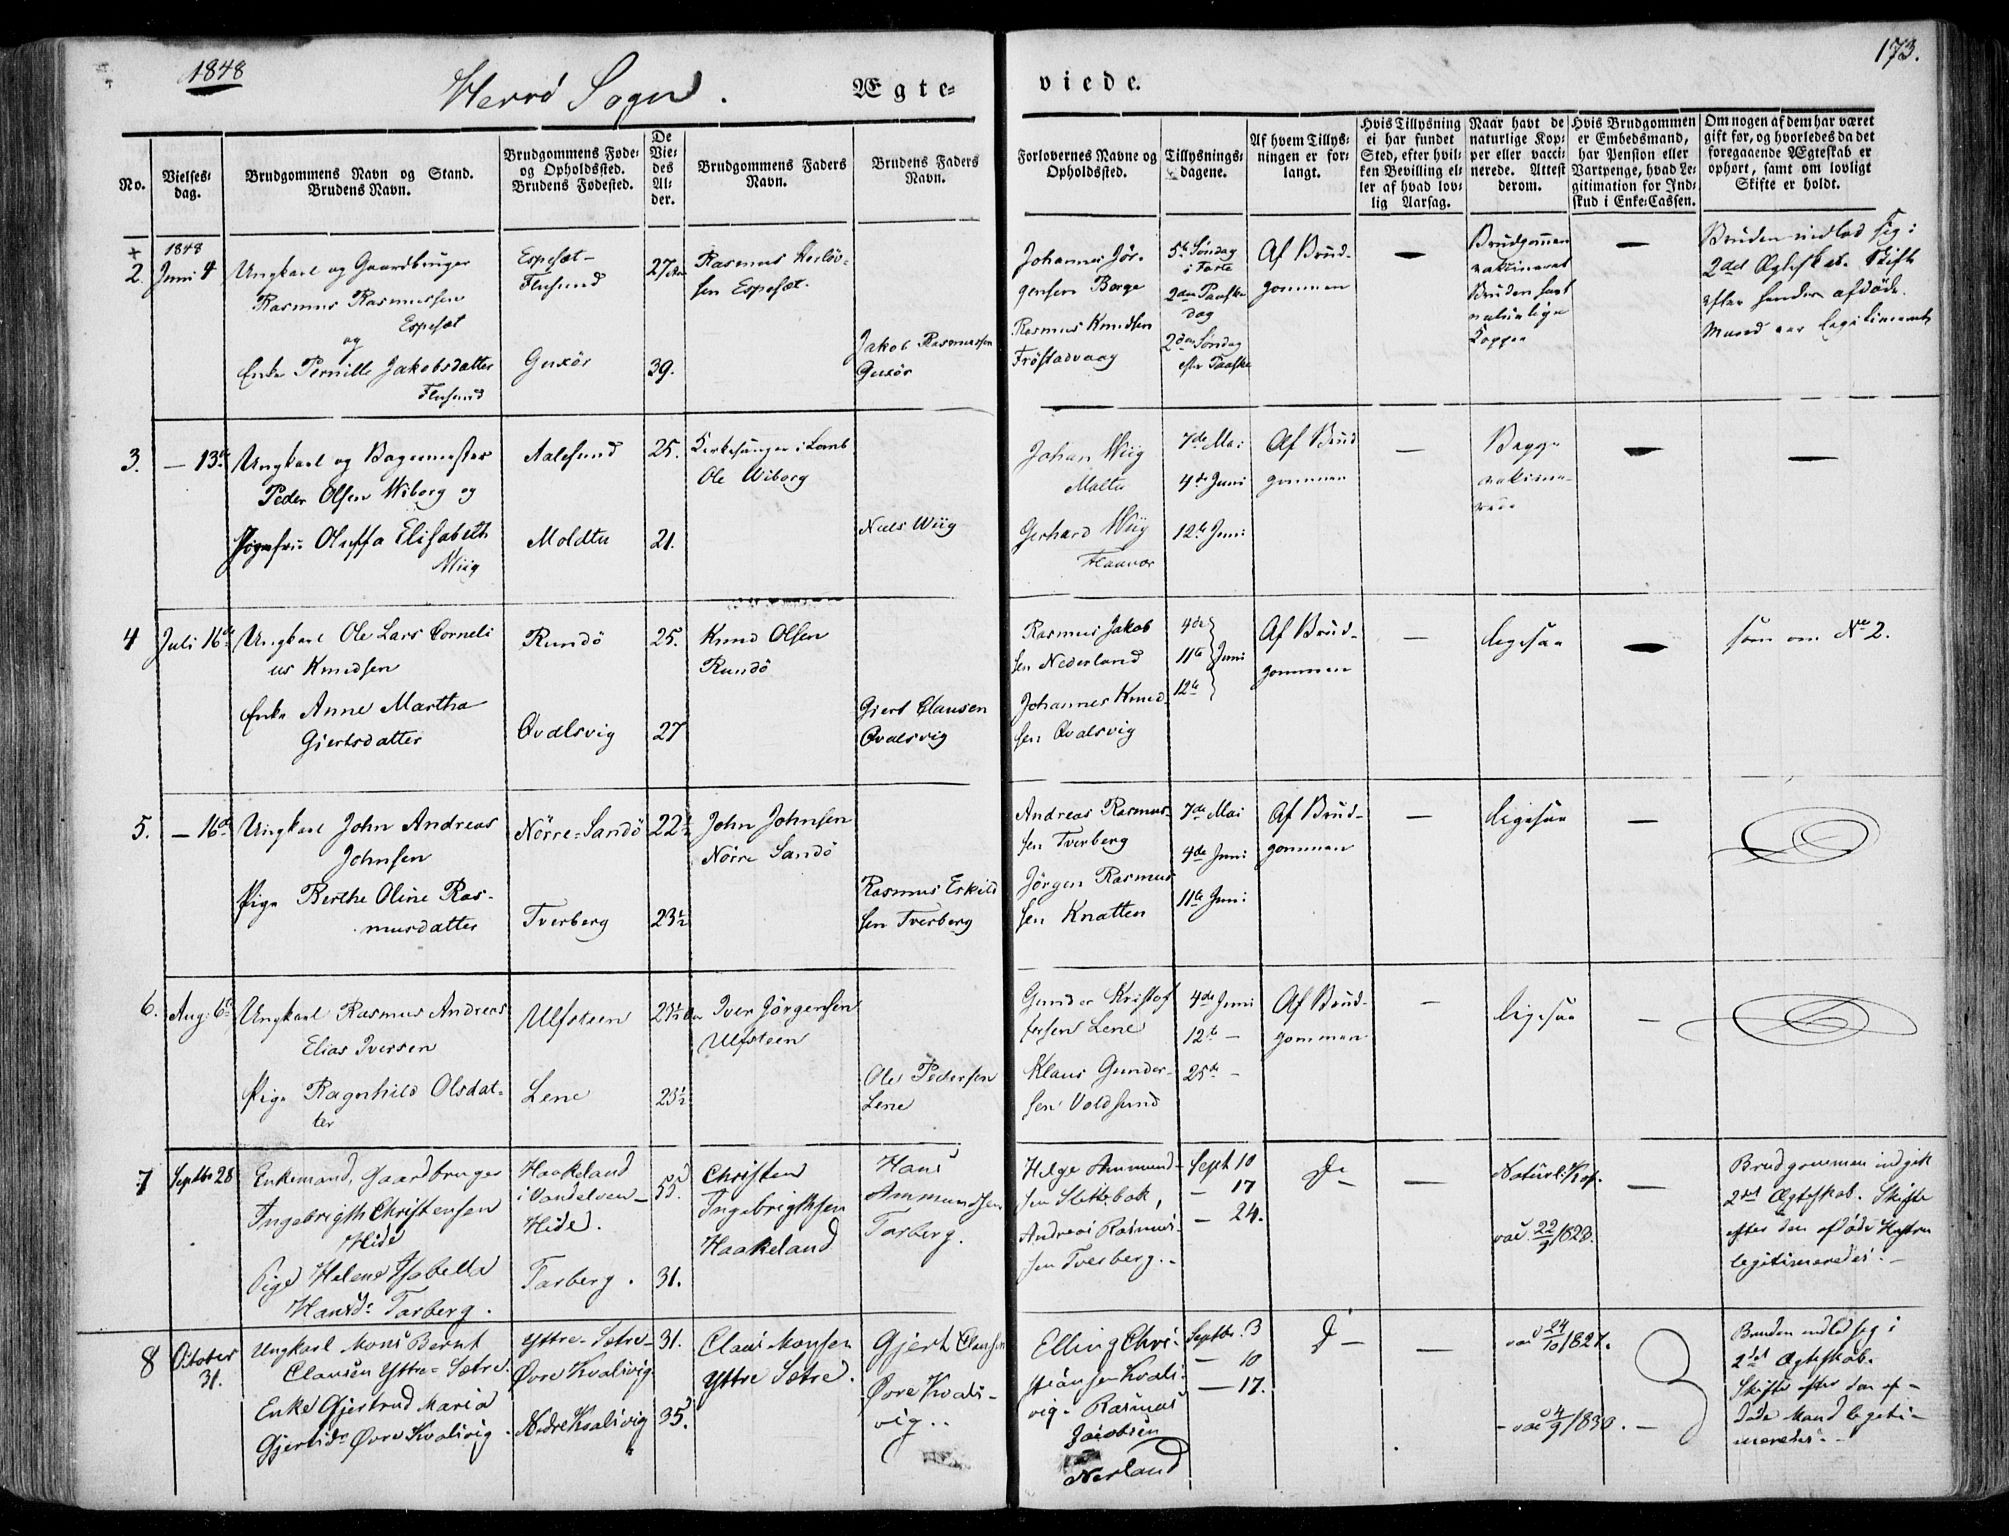 1848
Herrö Sogn.
Ægte-
viede.
173.
No.
Vielses-
dag.
Brudgommens Navn og Stand.
Brudens Navn.
Brudgommens Føde-
og Opholdssted.
Brudens Fødested.
De
Vie-
des
Al-
der.
Brudgommens Faders
Navn.
Brudens Faders
Navn.
Forlovernes Navne og
Opholdssted.
Tillysnings-
dagene.
Af hvem Tillys-
ningen er for-
langt.
Hvis Tillysning
ei har fundet
Sted, efter hvil-
ken Bevilling el-
ler af hvad lov-
lig Aarsag.
Naar havt de
naturlige Kop-
per eller vacci-
nerede. Attest
derom.
Hvis Brudgommen
er Embedsmand,
har Pension eller
Vartpenge, hvad Le-
gitimation for Ind-
skud i Enke-Cassen.
Om nogen af dem har været
gift før, og hvorledes da det
foregaaende Ægteskab er
ophørt, samt om lovligt
Skifte er holdt.
+
2.
1848
Juni 4
Ungkarl og Gaardbruger
Rasmus Rasmussen
Espesæt
og
Enke Pernille Jakobsdatter
Flusund
Espesæt-
Flusund
Guxör
27
39.
Rasmus
sen Espesæt.
Jakob Rasmussen
Guxör
Johannes Jör-
gensen Berge
Rasmus Knudsen
Fröstadvaag
5te Söndag
i Faste
2den Paaske
dag
2den Söndag
efter Paaske
Af Brud-
gommen
Brudgommen
vaksineret
Bruden havt
naturlige
Kopper
Bruden indlod sig i
2det Ægteskab. Skifte
efter hendes afdöde
Mand var legitimeret
3.
- 13de
Ungkarl og Bagermester
Peder Olsen Wiborg og
Jomfru Oluffa Elisabeth
Wiig
Aalesund
Moldtu
25.
21.
Kirkesanger i Lomb
Ole Wiborg
Niels Wiig
Johan Wiig
Moltu
Gerhard Wiig
Flaavær
7de Mai
4de Juni
12te Juni
Af Brud
gommen
Begge
vaksine-
rede
4
Juli 16de
Ungkarl Ole Lars Corneli
us Knudsen
Enke Anne Martha
Gjertsdatter
Rundö
Qvalsvig
25.
27
Knud Olsen
Rundö
Gjert Clausen
Qvalsvig
Rasmus Jakob
sen Nederland
Johannes Knud-
sen Qvalsvig
4de
11te Juni
12te
Af Brud-
gommen
ligesaa
som om No 2.
5.
- 16de
Ungkarl John Andreas
Johnsen
Pige Berthe Oline Ras-
musdatter
Nörre-Sandö
Tverberg
22½
23½
John Johnsen
Nörre Sandö
Rasmus Eskild
sen Tverberg
Andreas Rasmus-
sen Tverberg
Jörgen Rasmus
sen Knatten
7de Mai
4de Juni
11te Juni
Af Brud-
gommen
ligesaa
6.
Aug: 6te
Ungkarl Rasmus Andreas
Elias Iversen
Pige Ragnhild Olsdat-
ter
Ulfsteen
Lene
23½
Iver Jörgensen
Ulfsteen
Ole Pedersen
Lene
Gunder Kristof
fersen Lene
Klaus Gunder-
sen Voldsund
4de Juni
12te -
25de -
Af Brud-
gommen
ligesaa
7
Septbr 28
Enkemand, Gaardbruger
Ingebrigth Christensen
Hide
Pige Helene Isabella
Hansdr Tarberg.
Haakeland
i Vandelven-
Hide.
Tarberg.
55.
31.
Christen
Ingebrigthsen
Haakeland
Hans
Ammundsen
Tarberg.
Helge Ammund-
sen Slettebak,
Andreas Rasmus-
sen Tverberg.
Sept 10
- 17
- 24.
Do
Naturl: Kop.
vac 22/9 1828.
Brudgommen indgik
2det Ægteskab. Skifte
efter den afdöde Hustru
legitimeredes.
8
October
31.
Ungkarl Mons Bernt
Clausen Yttre-Sætre.
Enke Gjertrud Maria
Gjertsdr Övre Kvalsvig.
Yttre-Sætre-
Övre Kvalsvig.
Nedre Kvalsvig
31.
35.
Claus Monsen
Yttre Sætre.
Gjert Clausen
Övre Kvals-
vig.
Elling Chri-
stiansen Kvals-
vig. Rasmus
Jacobsen
Nerland
Septbr. 3
- 10
- 17.
D
vac 24/10 1827.
- vac 4/9 1830.
Bruden indlod sig i
2det Ægteskab.
Skifte efter den af-
döde Mand legiti-
meredes.